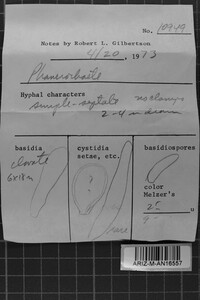 No. 10949
Notes by Robert L. Gilbertson
4/20, 1973
Phanerochaete
Hyphal characters
simple-septate no clamps
2-4 m diam
basidia cystidia basidiospores
setae, etc.
clavate
color
Melzer's
rare
ARIZ-M-AN16557